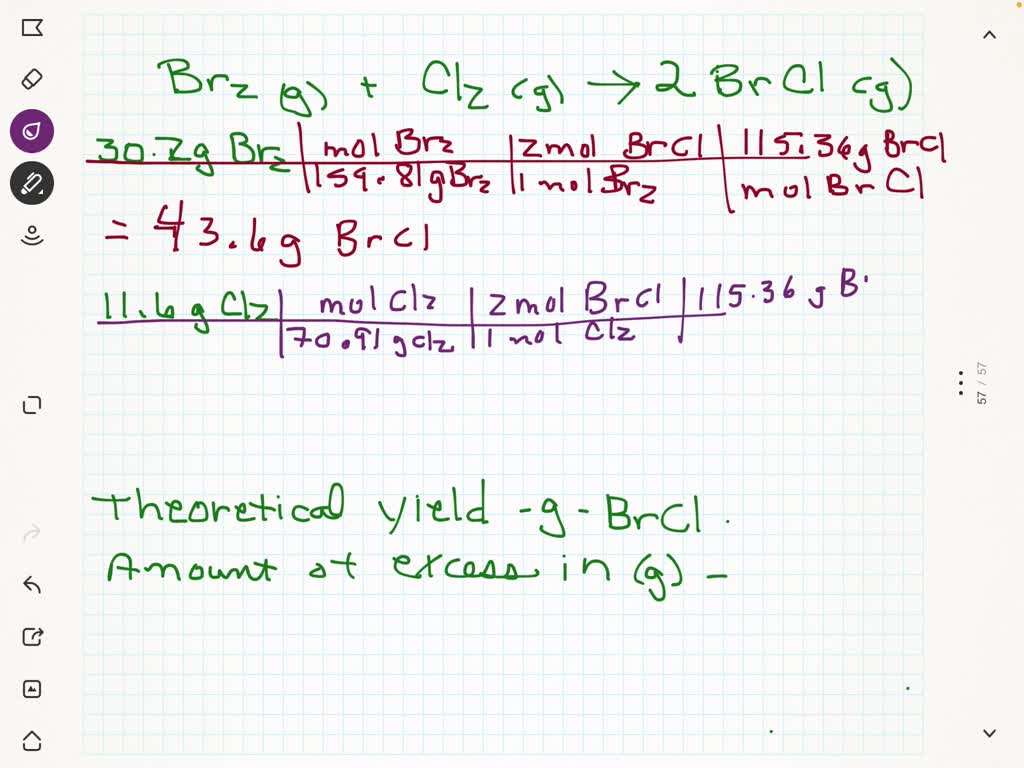 Br2 (g) + Cl2 (g) → 2 BrCl (g)
30.2g Br2 | mol Br2 | 2mol BrCl | 115.36g BrCl
159.81gBr2 | 1 mol Br2 | mol BrCl
= 43.6g BrCl
11.6 g Cl2 | mol Cl2 | 2 mol BrCl | 115.36 g B
70.91 g Cl2 | 1 mol Cl2
Theoretical yield - g - BrCl
Amount of excess in (g) -
57 / 57